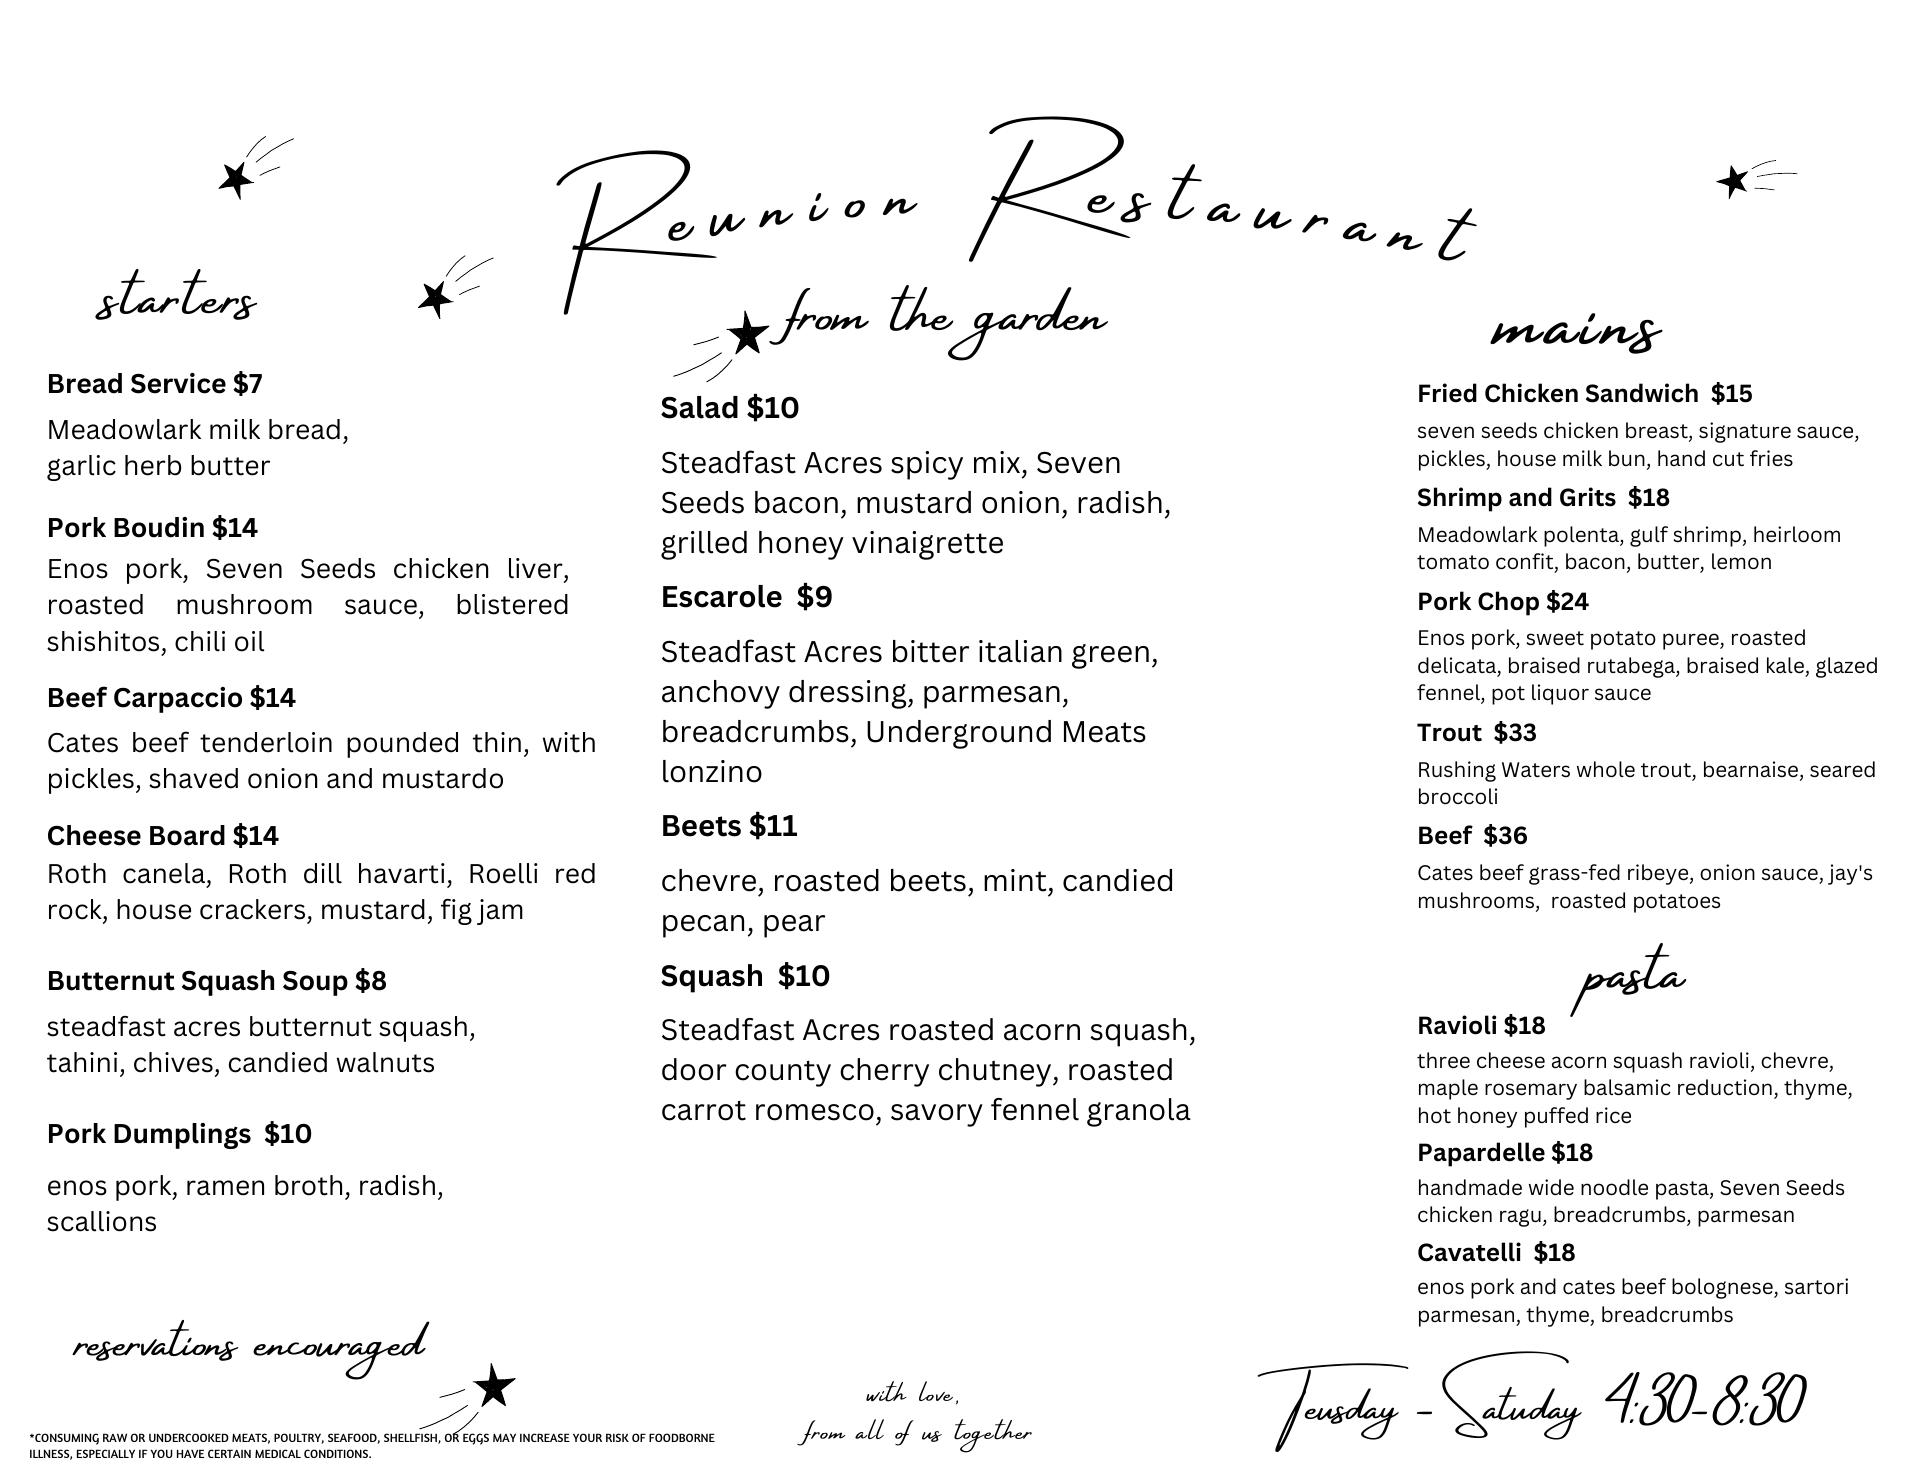 Reunion Restaurant
starters
Bread Service $7
Meadowlark milk bread,
garlic herb butter
Pork Boudin $14
Enos pork, Seven Seeds chicken liver,
roasted mushroom sauce, blistered
shishitos, chili oil
Beef Carpaccio $14
Cates beef tenderloin pounded thin, with
pickles, shaved onion and mustardo
Cheese Board $14
Roth canela, Roth dill havarti, Roelli red
rock, house crackers, mustard, fig jam
Butternut Squash Soup $8
steadfast acres butternut squash,
tahini, chives, candied walnuts
Pork Dumplings $10
enos pork, ramen broth, radish,
scallions
reservations encouraged
*CONSUMING RAW OR UNDERCOOKED MEATS, POULTRY, SEAFOOD, SHELLFISH, OR EGGS MAY INCREASE YOUR RISK OF FOODBORNE
ILLNESS, ESPECIALLY IF YOU HAVE CERTAIN MEDICAL CONDITIONS.
from the garden
Salad $10
Steadfast Acres spicy mix, Seven
Seeds bacon, mustard onion, radish,
grilled honey vinaigrette
Escarole $9
Steadfast Acres bitter italian green,
anchovy dressing, parmesan,
breadcrumbs, Underground Meats
lonzino
Beets $11
chevre, roasted beets, mint, candied
pecan, pear
Squash $10
Steadfast Acres roasted acorn squash,
door county cherry chutney, roasted
carrot romesco, savory fennel granola
with love,
from all of us together
mains
Fried Chicken Sandwich $15
seven seeds chicken breast, signature sauce,
pickles, house milk bun, hand cut fries
Shrimp and Grits $18
Meadowlark polenta, gulf shrimp, heirloom
tomato confit, bacon, butter, lemon
Pork Chop $24
Enos pork, sweet potato puree, roasted
delicata, braised rutabega, braised kale, glazed
fennel, pot liquor sauce
Trout $33
Rushing Waters whole trout, bearnaise, seared
broccoli
Beef $36
Cates beef grass-fed ribeye, onion sauce, jay's
mushrooms, roasted potatoes
pasta
Ravioli $18
three cheese acorn squash ravioli, chevre,
maple rosemary balsamic reduction, thyme,
hot honey puffed rice
Papardelle $18
handmade wide noodle pasta, Seven Seeds
chicken ragu, breadcrumbs, parmesan
Cavatelli $18
enos pork and cates beef bolognese, sartori
parmesan, thyme, breadcrumbs
Teusday - Satuday 4:30-8:30